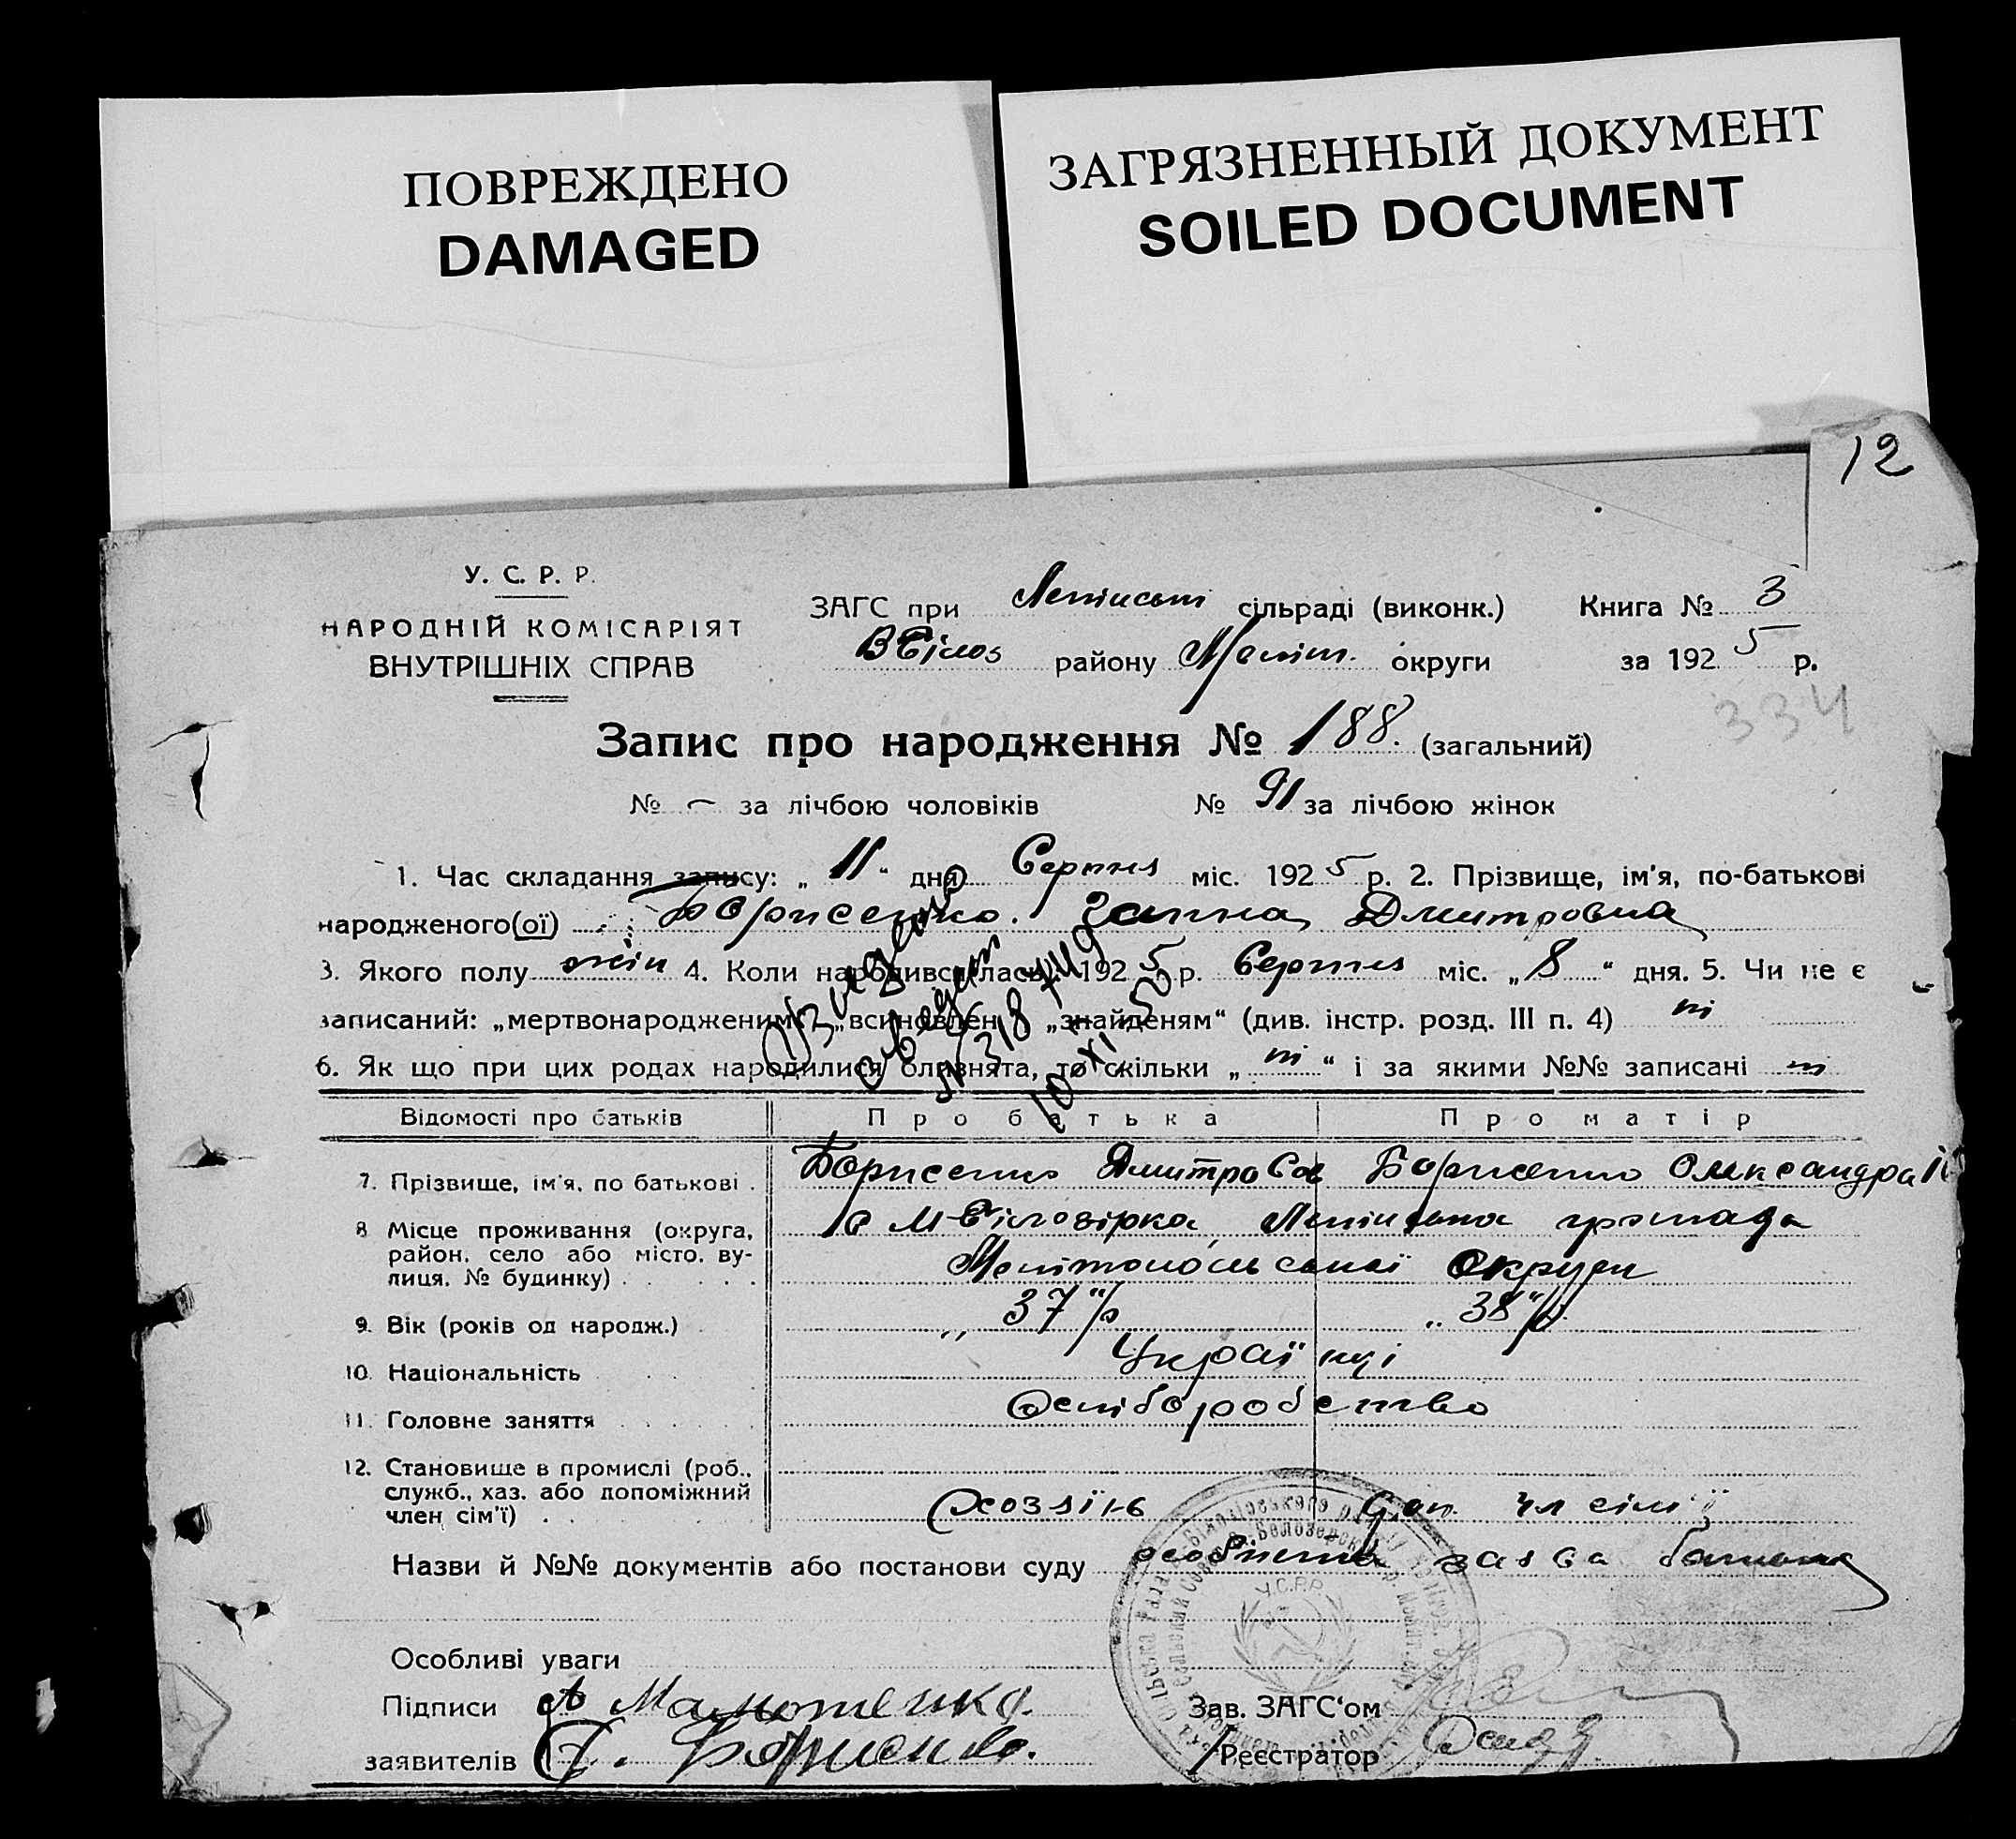 ПОВРЕЖДЕНО
DAMAGED
ЗАГРЯЗНЕННЫЙ ДОКУМЕНТ
SOILED DOCUMENT
12
У. С. Р. Р.
НАРОДНІЙ КОМІСАРІЯТ
ВНУТРІШНІХ СПРАВ
ЗАГС при сільраді (виконк.) Книга № 3
району Меліт. округи за 1925 р.
334
Запис про народження № 188. (загальний)
№ – за лічбою чоловіків № 91 за лічбою жінок
1. Час складання запису: „ 11 “ дня Серпня міс. 1925 р. 2. Прізвище, ім'я, по-батькові
народженого(ої) Борисенко Ганна Дмитровна
3. Якого полу жін 4. Коли народивсь, лась: 1925 р. Серпня міс. „ 8 “ дня. 5. Чи не є
записаний: „мертвонародженим“ „всиновлен „знайденям“ (див. інстр. розд. III п. 4) ні
6. Як що при цих родах народилися близнята, то скільки „ ні “ і за якими №№ записані ні
Відомості про батьків Про батька Про матір
7. Прізвище, ім'я, по батькові . Борисенко Дмитро Борисенко Олександра
8 Місце проживання (округа, с М-Білозірка, громада
район, село або місто, ву-
лиця, № будинку) . Мелітопольської округи
9. Вік (років од народж.) . 37 38
10. Національність Українці
11. Головне заняття . Хліборобство
12. Становище в промислі (роб.,
служб., хаз. або допоміжний
член сім'ї) . Хозяїн доп. чл сім'ї
Назви й №№ документів або постанови суду особиста заява батька
У.С.Р.Р.
Особливі уваги
Підписи
Зав. ЗАГС‘ом
заявителів Борисенко.
Реєстратор